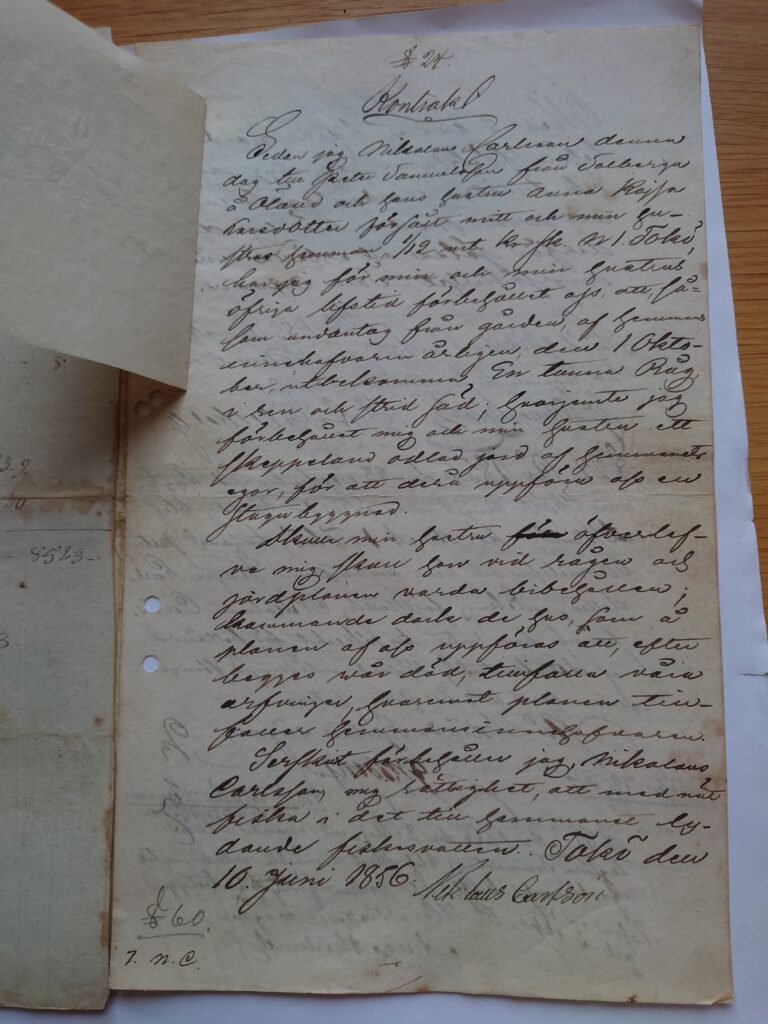 § 24.
Kontrakt
Sedan jag Nikolaus Carlsson denna
dag till Peter Samuelsson från Solberga
å Öland och hans hustru Anna Kajsa
Larsdotter försålt mitt och min hu-
strus hemman, 1/12 mt Kr. sk. N 1. Tokö,
har jag för min och min hustrus
öfriga lifstid förbehållet oss, att, så-
som undantag från gården, af hemmans
innehafvaren årligen, den 1 Okto-
ber, utbekomma En tunna Råg
i ren och strid säd; hvarjemte jag
förbehållet mig och min hustru ett
skeppsland odlad jord af hemmanets
egor, för att derå uppföra oss en
stugubyggnad.
Skulle min hustru öfverlef-
va mig, skall hon vid rågen och
jordplanen varda bibehållen;
kommande dock de hus, som å
planen af oss uppföras att, efter
begges vår död, tillfalla våra
arfvingar, hvaremot planen till-
faller hemmansinnehafvaren.
Serskilt förbehåller jag, Nikolaus
Carlsson, mig rättighet, att med nät
fiska i det till hemmanet ly-
dande fiskevatten. Tokö den
10. Juni 1856.
Niklaus Carlson
§ 60.
7. N. C.
8.
39.
50
8523-
3